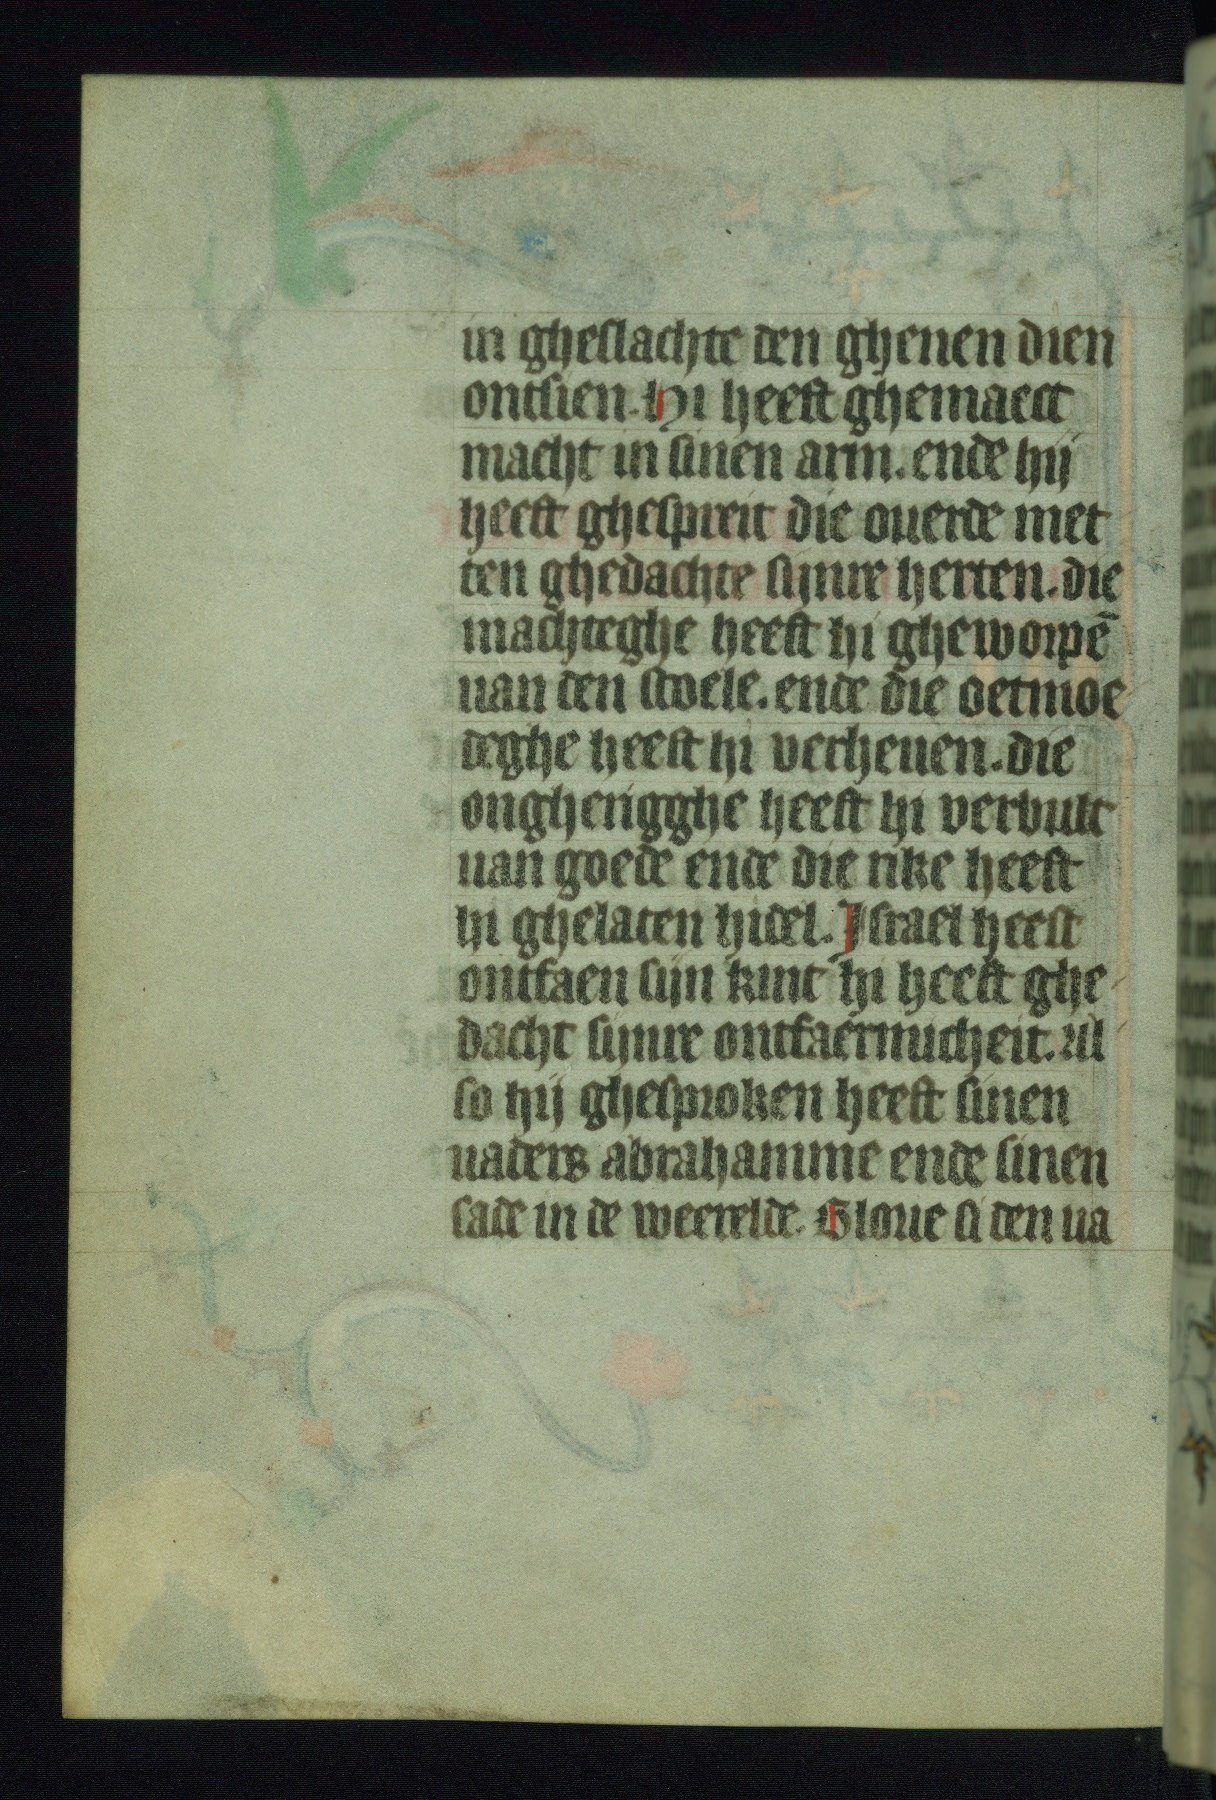 in gheslachte den ghenen dien
ontsien. Hi heeft ghemaect
macht in sinen arm. ende hij
heeft ghespreit die ouerde met
ten ghedachte sijnre herten. die
machteghe heeft hi gheworpē
uan den stoele. ende die oetmoe
deghe heeft hi verheuen. die
ongherigghe heeft hi vervult
uan goede ende die rike heeft
hi ghelaten hidel. Israel heeft
ontfaen sijn kint hi heeft ghe
dacht sijnre ontfaermicheit. Al
so hij ghesproken heeft sinen
uaders abrahamme ende sinen
sade in de weerelde. Glorie si den ua